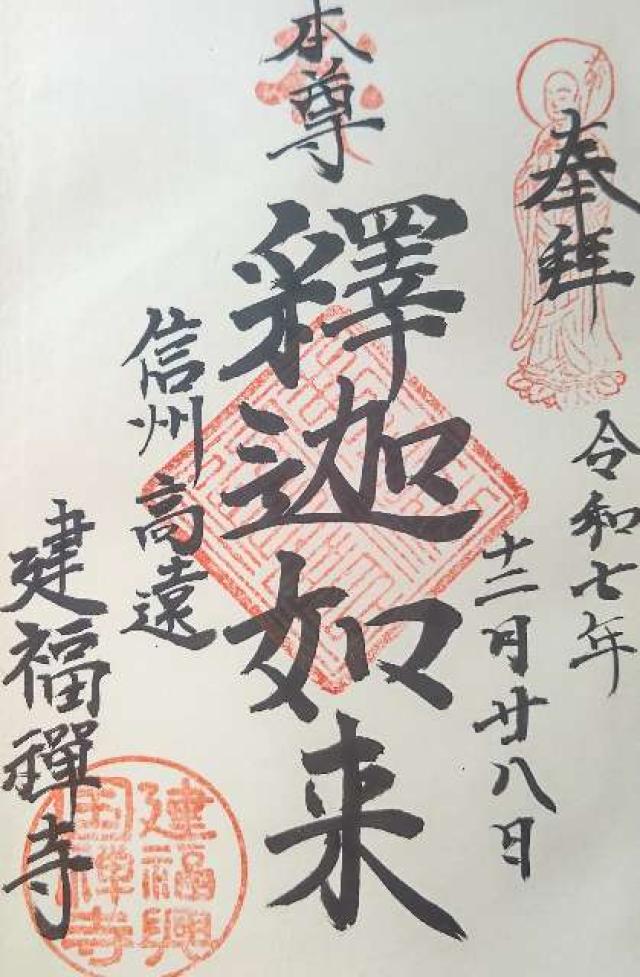 奉拜
令和七年
十二月廿八日
本尊
釋迦如来
信州高遠
建福禪寺
建福興
国禅寺